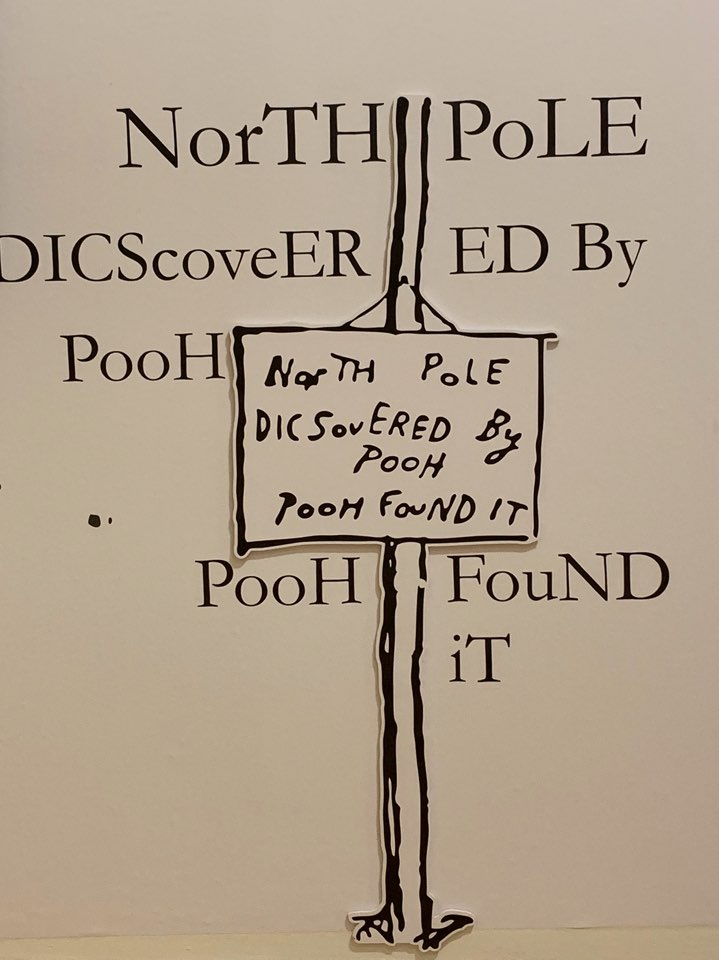 NorTH PoLE
DICScoveERED By
PooH
NorTH PoLE
DICSovERED By
POOH
PooH FouND IT
PooH FouND
iT